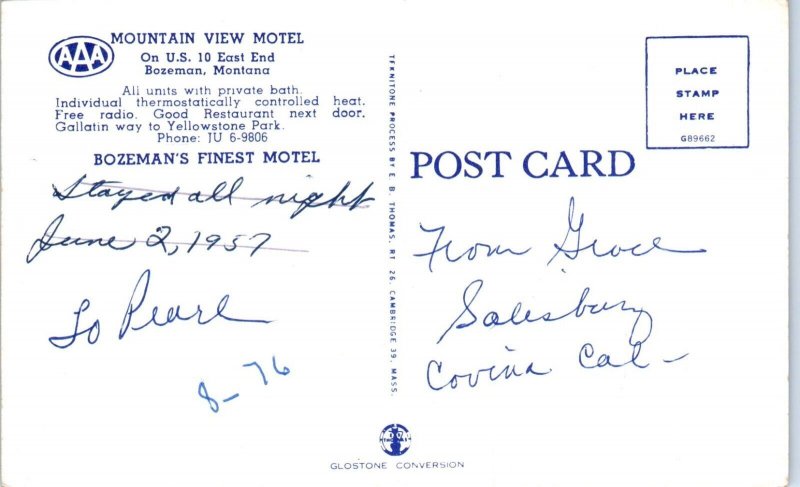 AAA
MOUNTAIN VIEW MOTEL
On U.S. 10 East End
Bozeman, Montana
All units with private bath.
Individual thermostatically controlled heat.
Free radio. Good Restaurant next door.
Gallatin way to Yellowstone Park.
Phone: JU 6-9806
BOZEMAN'S FINEST MOTEL
Stayed all night
June 2, 1957
To Pearl
8-76
TEKNITONE PROCESS BY E. B. THOMAS, RT 26, CAMBRIDGE 39, MASS.
POST CARD
PLACE
STAMP
HERE
G89662
From Grace
Salesbury
Covina Cal-
THOMAS
GLOSTONE CONVERSION